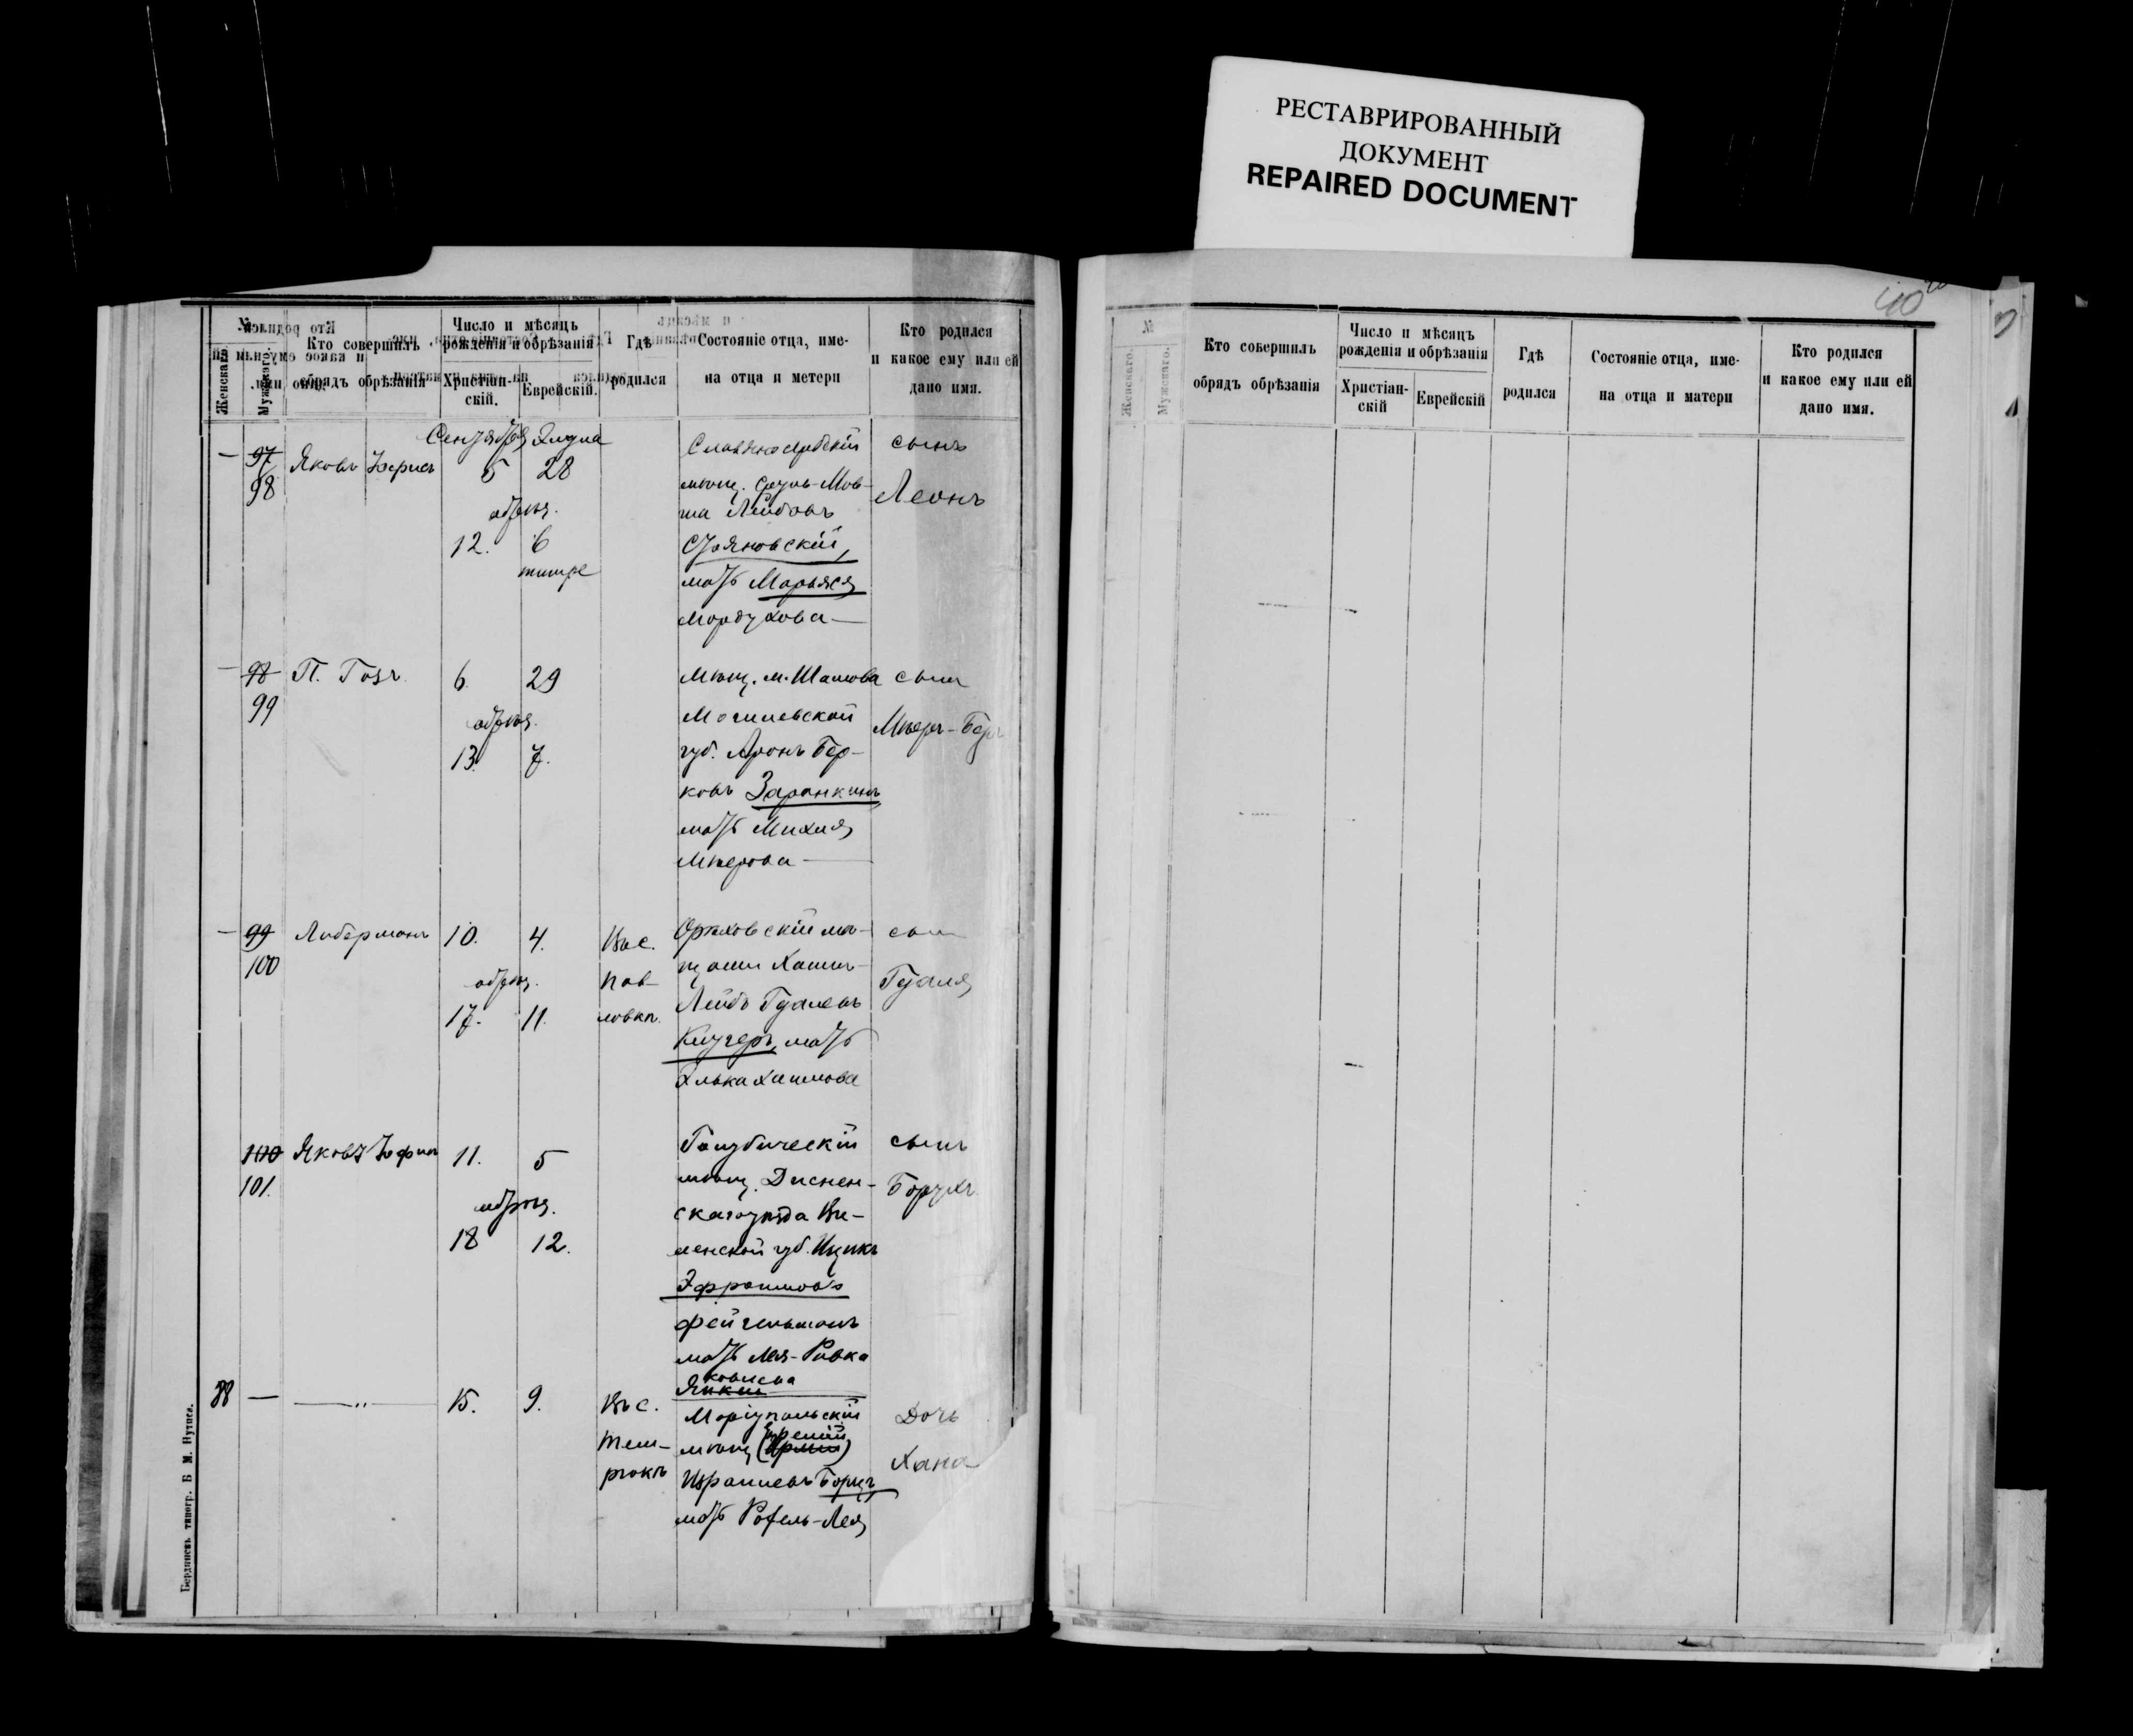 РЕСТАВРИРОВАННЫЙ
ДОКУМЕНТ
REPAIRED DOCUMENT
40
№
Женскаго.
Мужскаго.
Кто совершилъ
обрядъ обрѣзанія
Число и мѣсяцъ
рожденія и обрѣзанія
Христіан-
скій.
Еврейскій.
Гдѣ
родился
Состояніе отца, име-
на отца и метери
Кто родился
и какое ему или ей
дано имя.
Сентября Элула
— 97 Яковъ 5 28
98
обрѣз.
12. 6
тишре
Славяносербскій
мѣщ. Мов-
ша Лейбовъ
Стояновскій,
мать Марьяся
Мордухова —
сынъ
Леонъ
— 98 П. Гозъ 6. 29
99
обрѣз.
13. 7.
Мѣщ. м. Шамова
Могилевской
губ. Аронъ Бер-
ковъ Заранкинъ
мать Михля
Мѣерова —
сынъ
Мѣеръ-Беръ
— 99 Либерманъ 10. 4.
100
обрѣз.
17. 11.
Въ с.
Пав-
ловкѣ.
Орѣховскій мѣ-
щани Хаимъ-
Лейбъ Гдалевъ
Кучеръ, мать
Элька Хаимова
сын
Гдаля
100 Яковъ 11. 5
101.
обрѣз.
18 12.
Голубическій
мѣщ. Диснен-
скаго уѣзда Ви-
ленской губ. Ицикъ
Эфроимовъ
Фейгельманъ
мать Лея-Ривка
ковлева
сынъ
Борухъ
88 — —„— 15. 9.
Въ с.
Тем-
рюкѣ
Маріупольскій
мѣщ
Израилевъ Борцъ
мать Рохель-Лея
Дочь
Хана
Бердянскъ типогр. Б М. Нутиса.
№
Женскаго.
Мужскаго.
Кто совершилъ
обрядъ обрѣзанія
Число и мѣсяцъ
рожденія и обрѣзанія
Христіан-
скій
Еврейскій
Гдѣ
родился
Состояніе отца, име-
на отца и матери
Кто родился
и какое ему или ей
дано имя.